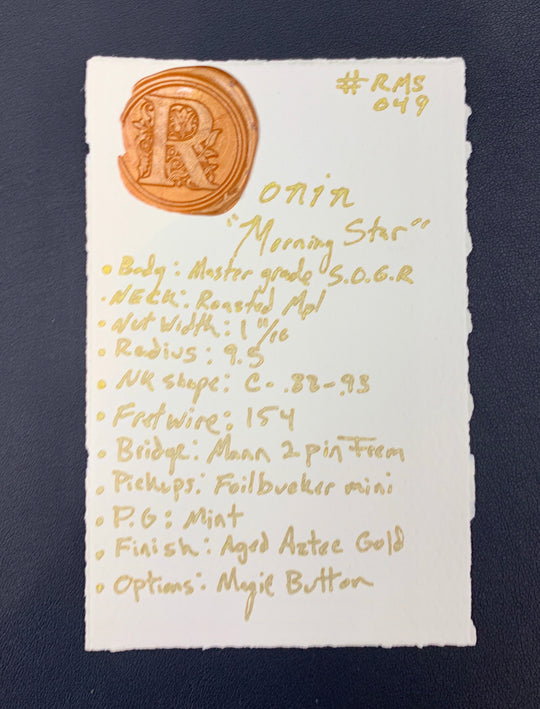 #RMS
049
R
onin
"Morning Star"
• Body: Master grade S.O.G.R
• NECK: Roasted Mpl
• Nut Width: 1 11/16
• Radius: 9.5
• NK shape: C - .88-.93
• Fretwire: 154
• Bridge: Mann 2 pin Trem
• Pickups: Foilbucker mini
• P.G: Mint
• Finish: Aged Aztec Gold
• Options: Magic Button